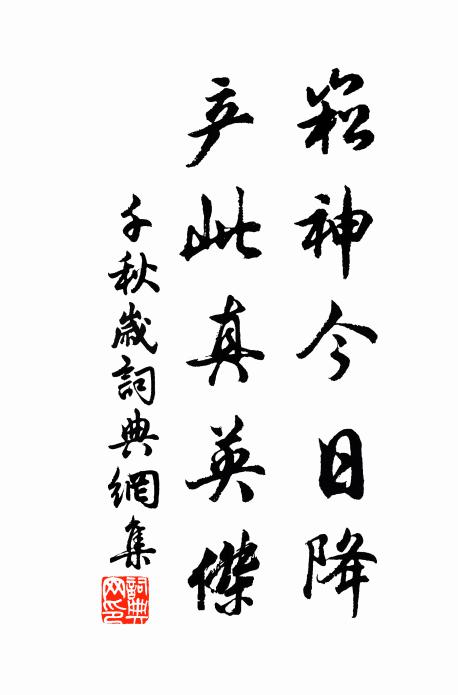 崧神今日降
产此真英傑
千秋歲詞典網集
詞典網印